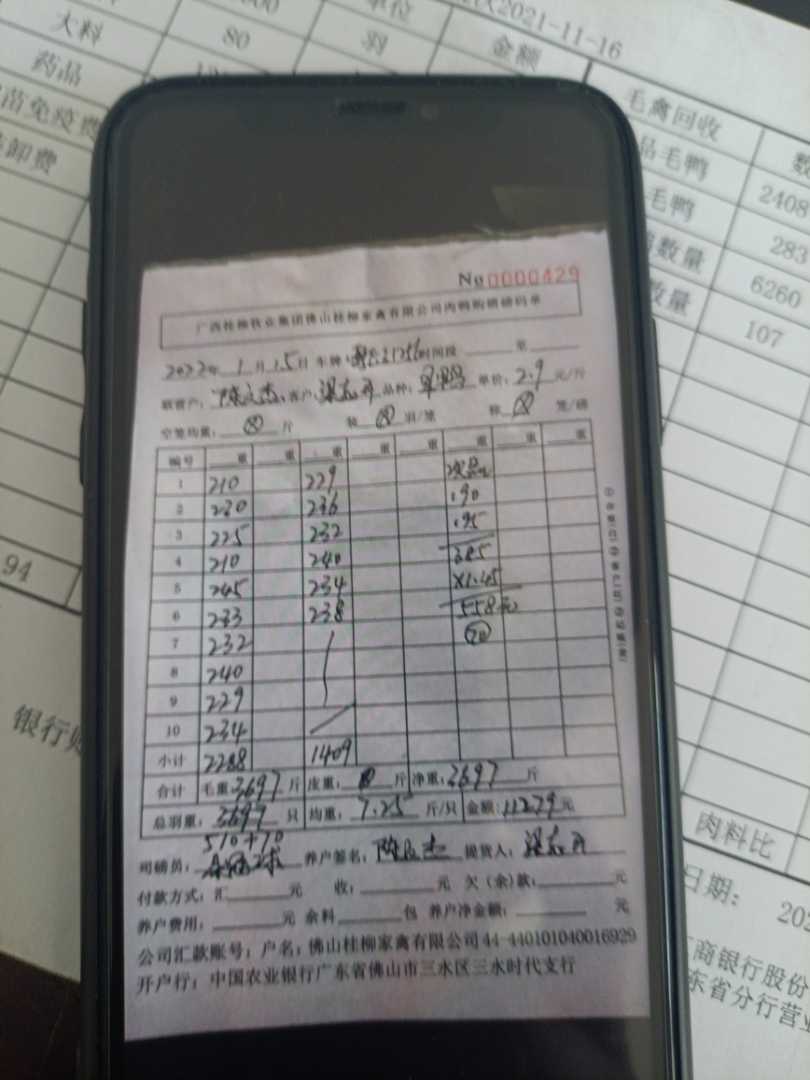 2021-11-16
大料 80 羽 金额 毛禽回收
药品 品毛鸭 2408
苗免疫费 毛鸭 283
卸费 数量 6260
数量 107
94
No 0000429
广西桂柳牧业集团佛山桂柳家禽有限公司肉鸭购销磅码单
2022年 1月 15日 车牌: 时间段 至
客户: 品种: 单价: 2.9 元/斤
空笼均重: 斤 装 羽/笼 称 笼/磅
编号 重 重 重 重 重 重 重 重
1 210 229 次品
2 230 236 190
3 225 232 195
4 210 240 385
5 245 234 X1.45
6 233 238 558元
7 232 70
8 240
9 229
10 234
小计 2288 1409
合计 毛重: 3697 斤 皮重: 斤 净重: 3697 斤
总羽重: 3697 只 均重: 7.25 斤/只 金额: 11279 元
510+70
司磅员: 养户签名: 提货人:
付款方式: 汇 元 收: 元 欠(余)款: 元
养户费用: 元 余料 包 养户净金额: 元
公司汇款账号: 户名: 佛山桂柳家禽有限公司 44-440101040016929
开户行: 中国农业银行广东省佛山市三水区三水时代支行
银行账
肉料比
日期: 202
商银行股份
东省分行营业